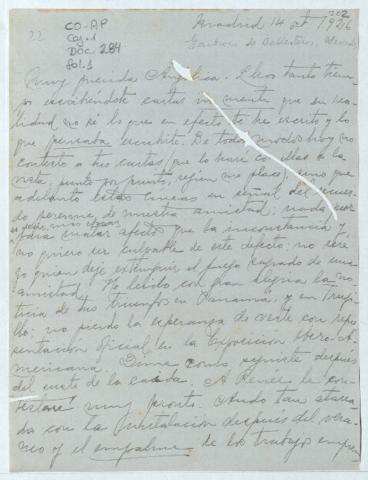 22
CO-AP
Caj. 1
Doc. 284
Fol. 1
202
Madrid 14 1926
Muy querida Angélica. Llevo tanto tiem-
po escribiéndote cartas mente que en rea-
lidad no sé lo que en efecto te he escrito y lo
que pensaba escribirte. De todos modos hoy no
contesto a tus cartas (que lo haré con ellas a la
vista, punto por punto, según me place), sino que
adelanto estas líneas en señal del recuer-
do perenne de nuestra amistad; nada por
dría causar efectos que la inconstancia y
no quiero ser culpable de este defecto; no seré
yo quien deje extinguir el fuego sagrado de una
amistad. He leído con gran alegría la no-
ticia de tus triunfos en Panamá, y en Truji-
llo; no pierdo la esperanza de verte con repre-
sentación oficial en la Exposición Ibero-A-
mericana. Dime como seguiste después
del susto de la caída. A le con-
testaré muy pronto. Ando tan atarea-
da con la instalación después del vera-
neo y el empalme de los trabajos